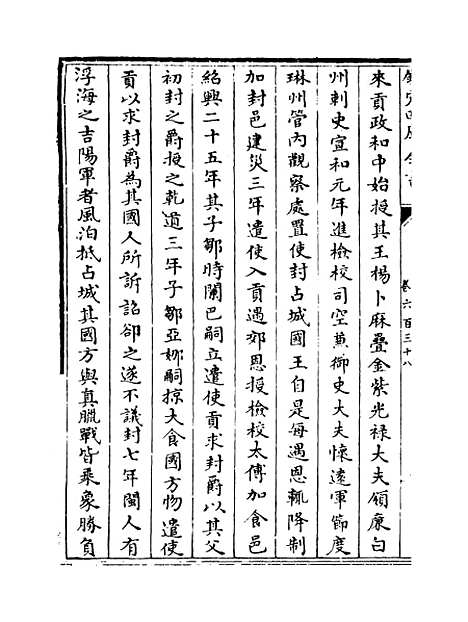 欽定四庫全書
卷六百三十八
來貢政和中始授其王楊卜麻疊金紫光禄大夫領廉白
州刺史宣和元年進檢校司空兼御史大夫懷遠軍節度
琳州管内觀察處置使封占城國王自是每遇恩輒降制
加封邑建炎三年遣使入貢遇郊恩授檢校太傅加食邑
紹興二十五年其子鄒時闌巴嗣立遣使貢求封爵以其父
初封之爵授之乾道三年子鄒亞娜嗣掠大食國方物遣使
貢以求封爵為其國人所訴詔卻之遂不議封七年閩人有
浮海之吉陽軍者風泊抵占城其國方與真臘戰皆乗象勝負